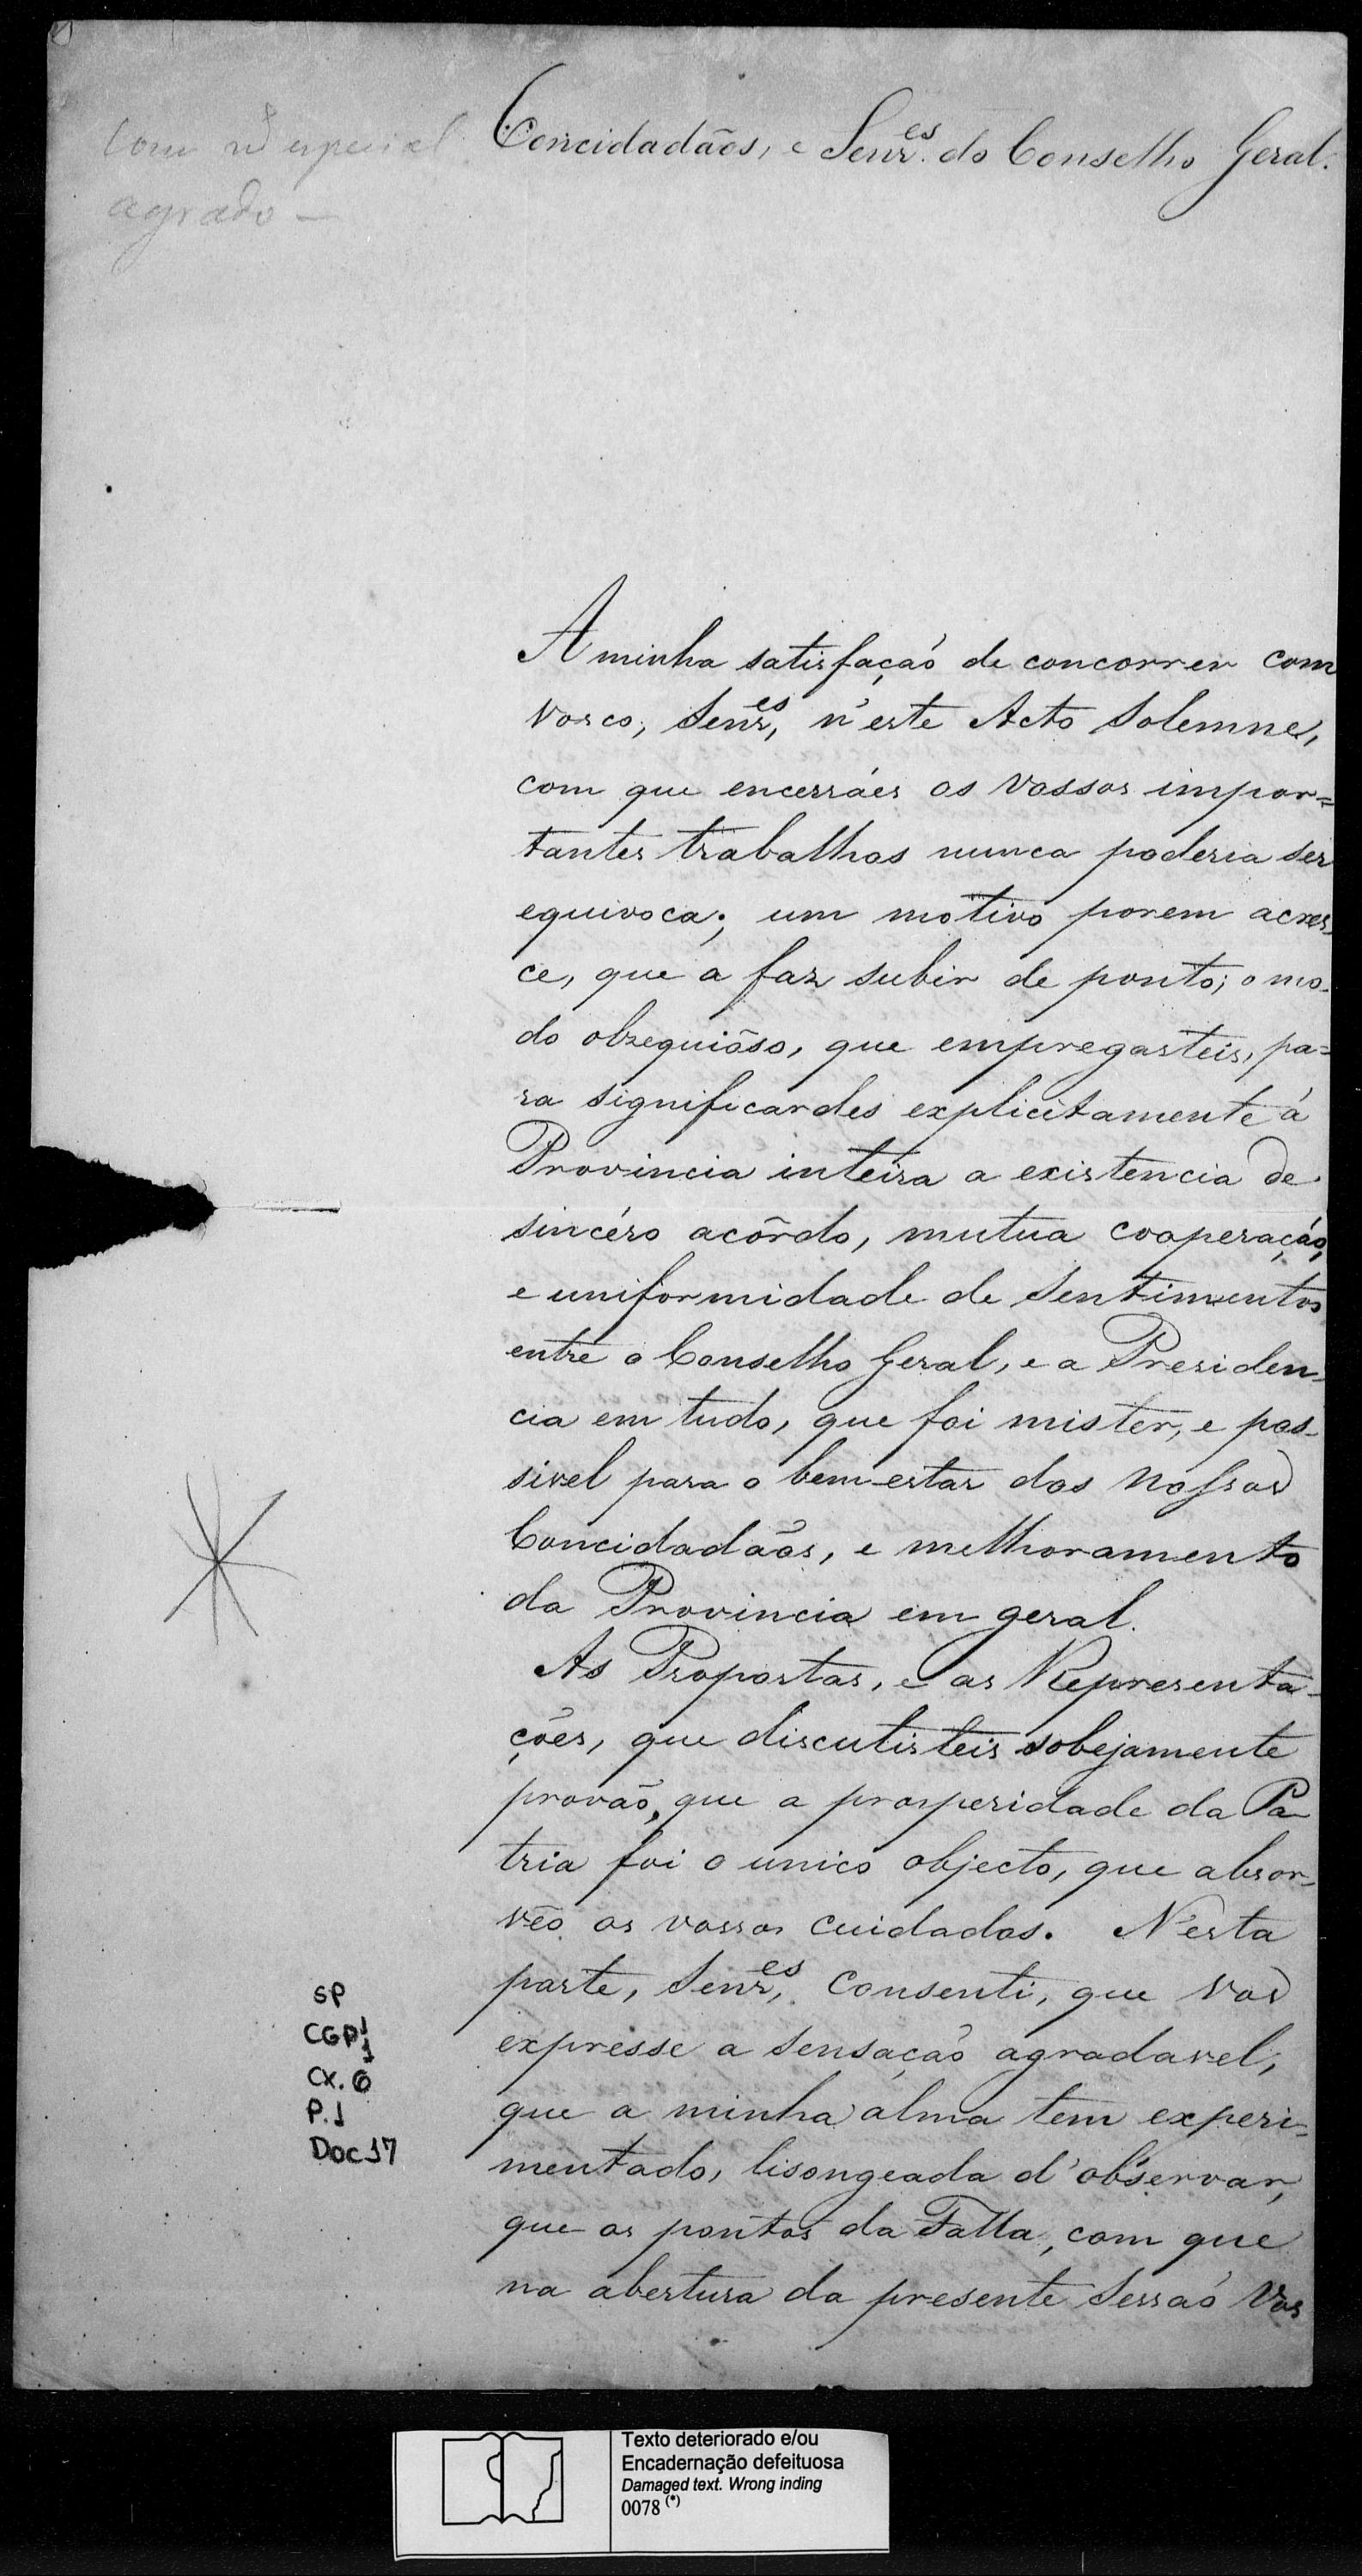 Concidadãos, e Senr.es do Conselho Geral.
especial
agrado –
A minha satisfaçaõ de concorrer com
vosco, Senr.es, n'este Acto Solemne,
com que encerráes os vossos impor=
tantes trabalhos nunca poderia ser
equivoca; um motivo porem acres-
ce, que a faz subir de ponto; o mo-
do obzequiôso, que empregasteis, pa=
ra significardes explicitamente á
Provincia inteira a existencia de
sincéro acôrdo, mutua cooperaçáo,
e uniformidade de sentimentos
entre o Conselho Geral, e a Presiden-
cia em tudo, que foi mister, e pos-
sivel para o bem estar dos nossos
Concidadãos, e melhoramento
da Provincia em geral.
As Propostas, e as Representa-
ções, que discutisteis sobejamente
provaõ, que a prosperidade da Pa-
tria foi o unico objecto, que absor-
vêo os vossos cuidados. N'esta
parte, Senr.es, consenti, que vos
expresse a sensaçaõ agradavel,
que a minha alma tem experi-
mentado, lisongeada d'observar,
que os pontos da Falla, com que
na abertura da presente Sessaõ vos
SP
CGP1
1
CX. 6
P.1
Doc 17
Texto deteriorado e/ou
Encadernação defeituosa
Damaged text. Wrong inding
0078 (*)